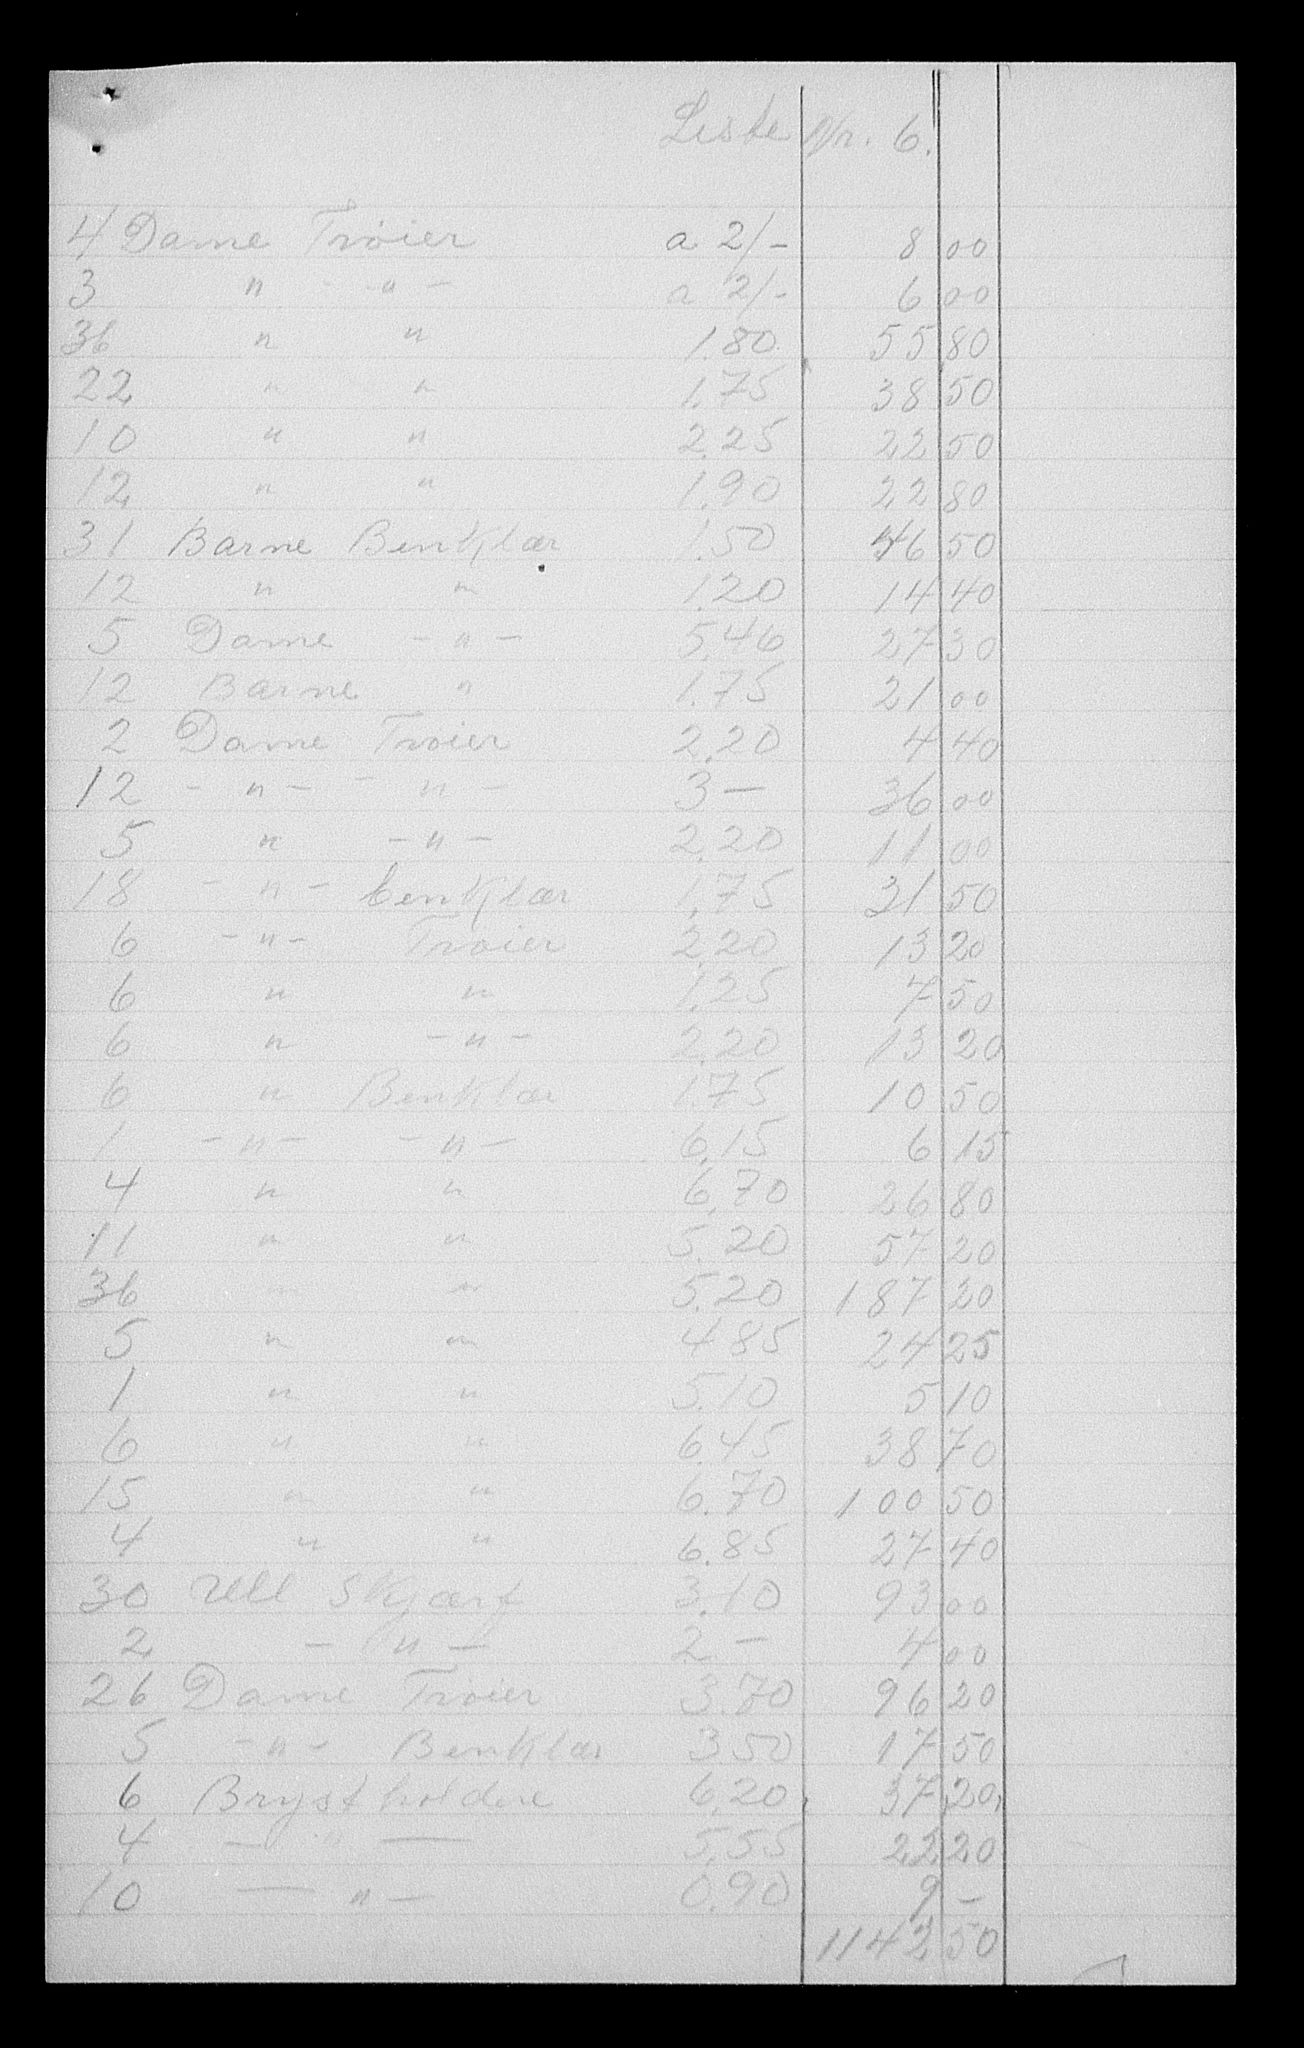 Liste Nr. 6.
4 Dame Trøier a 2/- 8 00
3 " - " - a 2/- 6 00
36 " " 1.80 55 80
22 " " 1.75 38 50
10 " " 2.25 22 50
12 " " 1.90 22 80
31 Barne Benklær 1.50 46 50
12 " " 1.20 14 40
5 Dame - " - 5.46 27 30
12 Barne " 1.75 21 00
2 Dame Trøier 2.20 4 40
12 - " - - " - 3 - 36 00
5 " - " - 2.20 11 00
18 - " - benklær 1.75 31 50
6 - " - Trøier 2.20 13 20
6 " " 1.25 7 50
6 " - " - 2.20 13 20
6 " Benklær 1.75 10 50
1 - " - - " - 6.15 6 15
4 " " 6.70 26 80
11 " " 5.20 57 20
36 " " 5.20 187 20
5 " " 4.85 24 25
1 " " 5.10 5 10
6 " " 6.45 38 70
15 " " 6.70 100 50
4 " " 6.85 27 40
30 Ull Skjærf 3.10 93 00
2 - " - 2 - 4 00
26 Dame Trøier 3.70 96 20
5 - " - Benklær 3.50 17 50
6 Brystholdere 6.20 37 20
4 - " - 5.55 22 20
10 - " - 0.90 9 -
1142 50